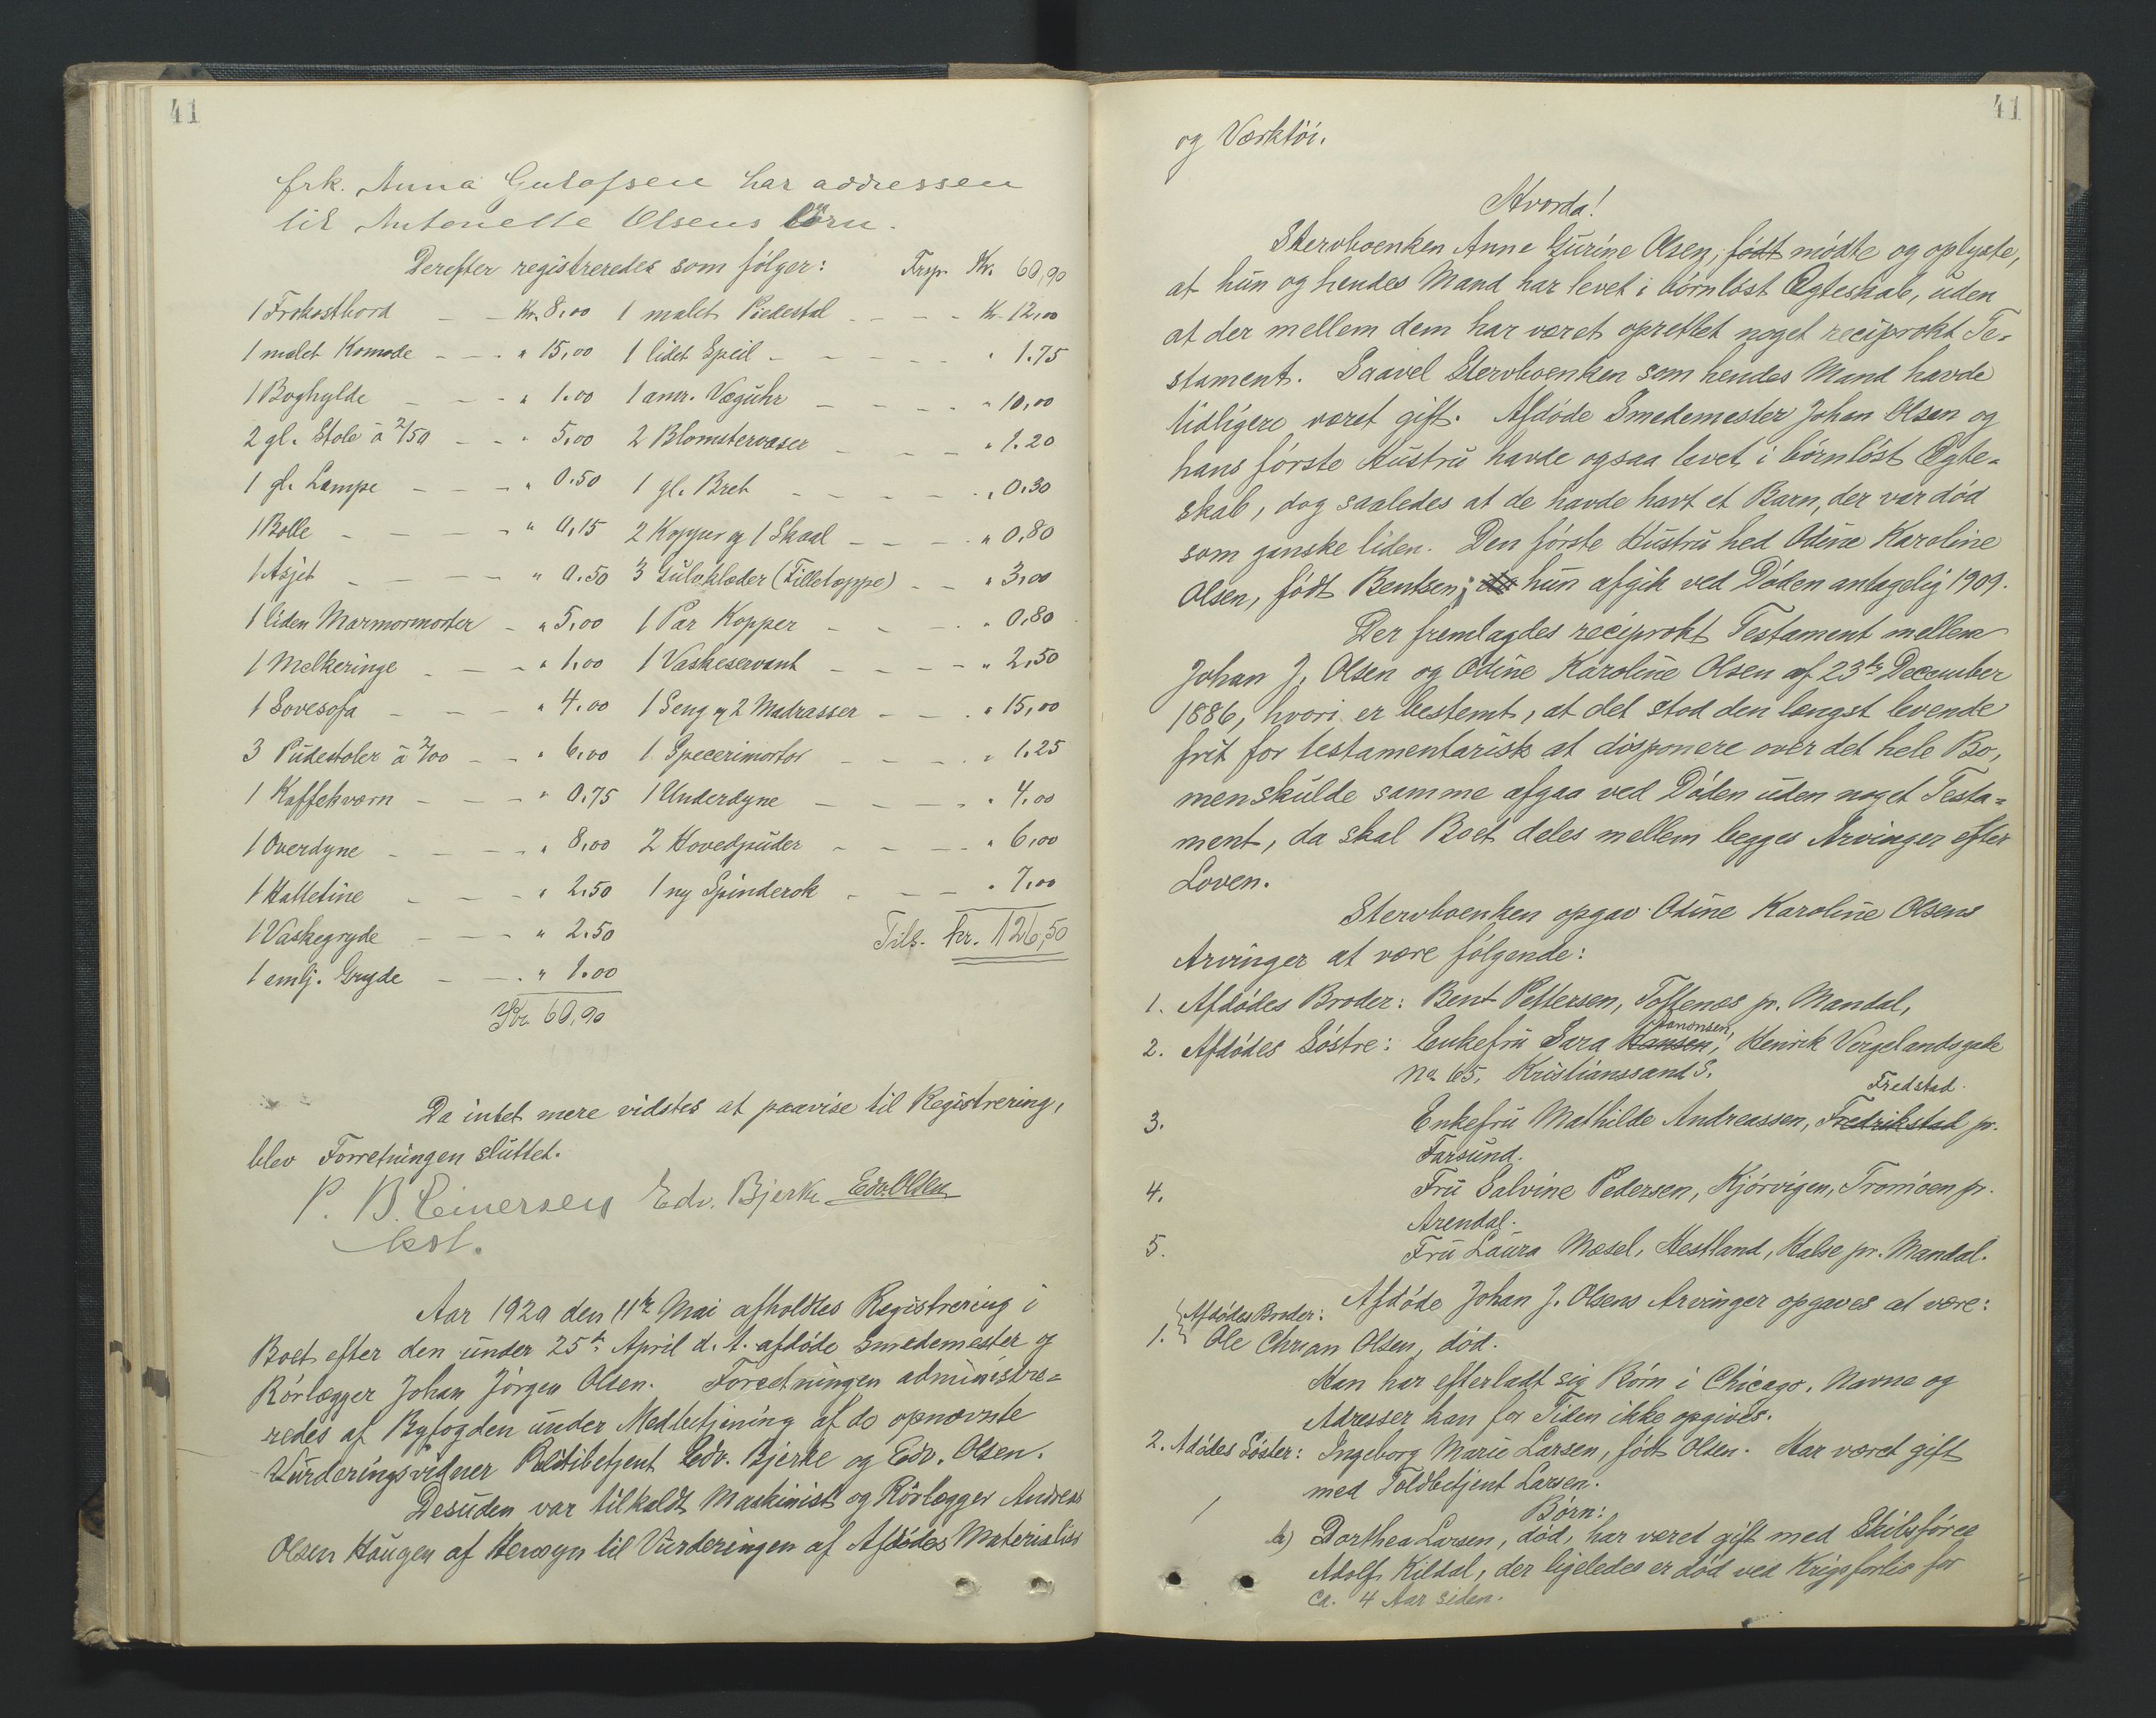 41
frk. Anna Gulofsen har addressen
til Antonette Olsens börn.
Derefter registreredes som følger: Frsp. Kr. 60,90
1 Frokostbord - - Kr. 8,00 1 malet Piedestal - - - - Kr. 12,00
1 malet Komode - - - " 15,00 1 lidet Speil - - - - - " 1.75
1 Boghylde - - - " 1.00 1 amr. Væguhr - - - - " 10,00
2 gl. Stole à 2/50 - - " 5,00 2 Blomstervaser - - - " 1.20
1 gl. Lampe - - - " 0.50 1 gl. Bret - - - - - " 0.30
1 Bolle - - - - " 0,15 2 Kopper og 1 Skaal - - - " 0,80
1 Asjet - - - - " 0.50 3 Gulvklæder (Filletæppe) - - " 3,00
1 liden Marmormorter - " 5,00 1 Par Kopper - - - - " 0,80
1 Melkeringe - - - " 1.00 1 Vaskeservant - - - - " 2,50
1 Sovesofa - - - " 4.00 1 Seng og 2 Madrasser - - - " 15,00
3 Pudestoler à 2/00 - - " 6,00 1 Specerimorter - - - - " 1.25
1 Kaffekværn - - - " 0.75 1 Underdyne - - - - " 4.00
1 Overdyne - - - - " 8,00 2 Hovedpuder - - - - " 6,00
1 Kattetine - - - " 2.50 1 ny Spinderok - - - - " 7.00
1 Vaskegryde - - - " 2.50 Tils. kr. 126,50
1 emlj. Gryde - - - " 1.00
Kr. 60,90
Da intet mere vidstes at paavise til Registrering,
blev Forretningen sluttet.
P. B. Einersen Edv. Bjerke Edv. Olsen
kst.
Aar 1920 den 11te Mai afholdtes Registrering i
Boet efter den under 25de April d. A. afdøde Smedemester og
Rørlægger Johan Jørgen Olsen. Forretningen administre=
redes af Byfogden under Medbetjening af de opnævnte
Vurderingsvidner Politibetjent Edv. Bjerke og Edv. Olsen.
Desuden var tilkaldt Maskinist og Rørlægger Andreas
Olsen Haugen af Herøya til Vurderingen af Afdødes Materialier
41
og Værktöi.
Hvorda!
Stervboenken Anne Gurine Olsen, født mødte og oplyste,
at hun og hendes Mand har levet i børnløst Ægteskab, uden
at der mellem dem har været oprettet noget reciprokt Te=
stament. Saavel Stervboenken som hendes Mand havde
tidligere været gift. Afdøde Smedemester Johan Olsen og
hans første Hustru havde ogsaa levet i børnløst Ægte=
skab, dog saaledes at de havde havt et Barn, der var død
som ganske liden. Den første Hustru hed Odine Karoline
Olsen, født Bentsen; hun afgik ved Døden antagelig 1909.
Der fremlagdes reciprokt Testament mellem
Johan J. Olsen og Odine Karoline Olsen af 23de December
1886, hvori er bestemt, at det stod den længst levende
frit for testamentarisk at disponere over det hele Bo,
men skulde samme afgaa ved Døden uden noget Testa=
ment, da skal Boet deles mellem begges Arvinger efter
Loven.
Stervboenken opgav Odine Karoline Olsens
Arvinger at være følgende:
1. Afdødes Broder: Bent Pettersen, Toftenæs pr. Mandal,
2. Afdødes Søstre: Enkefru Sara Hansen, Henrik Vergelandsgade
No 65, Kristianssand S.
Fredstad
3. Enkefru Mathilde Andreassen, Fredrikstad pr.
Farsund.
4. Fru Salvine Pedersen, Kjørvigen, Tromöen pr.
Arendal.
5. Fru Laura Mæsel, Hestland, Halse pr. Mandal.
Afdøde Johan J. Olsens Arvinger opgaves at være:
Afdødes Broder:
1. Ole Chrian Olsen, död.
Han har efterladt sig Børn i Chicago. Navne og
Adresser kan for Tiden ikke opgives.
2. Afdødes Søster: Ingeborg Marie Larsen, født Olsen. Har været gift
med Toldbetjent Larsen.
Børn:
a) Dorthea Larsen, død, har været gift med Skibsfører
Adolf Kildal, der ligeledes er død ved Krigsforlis for
ca. 4 Aar siden.